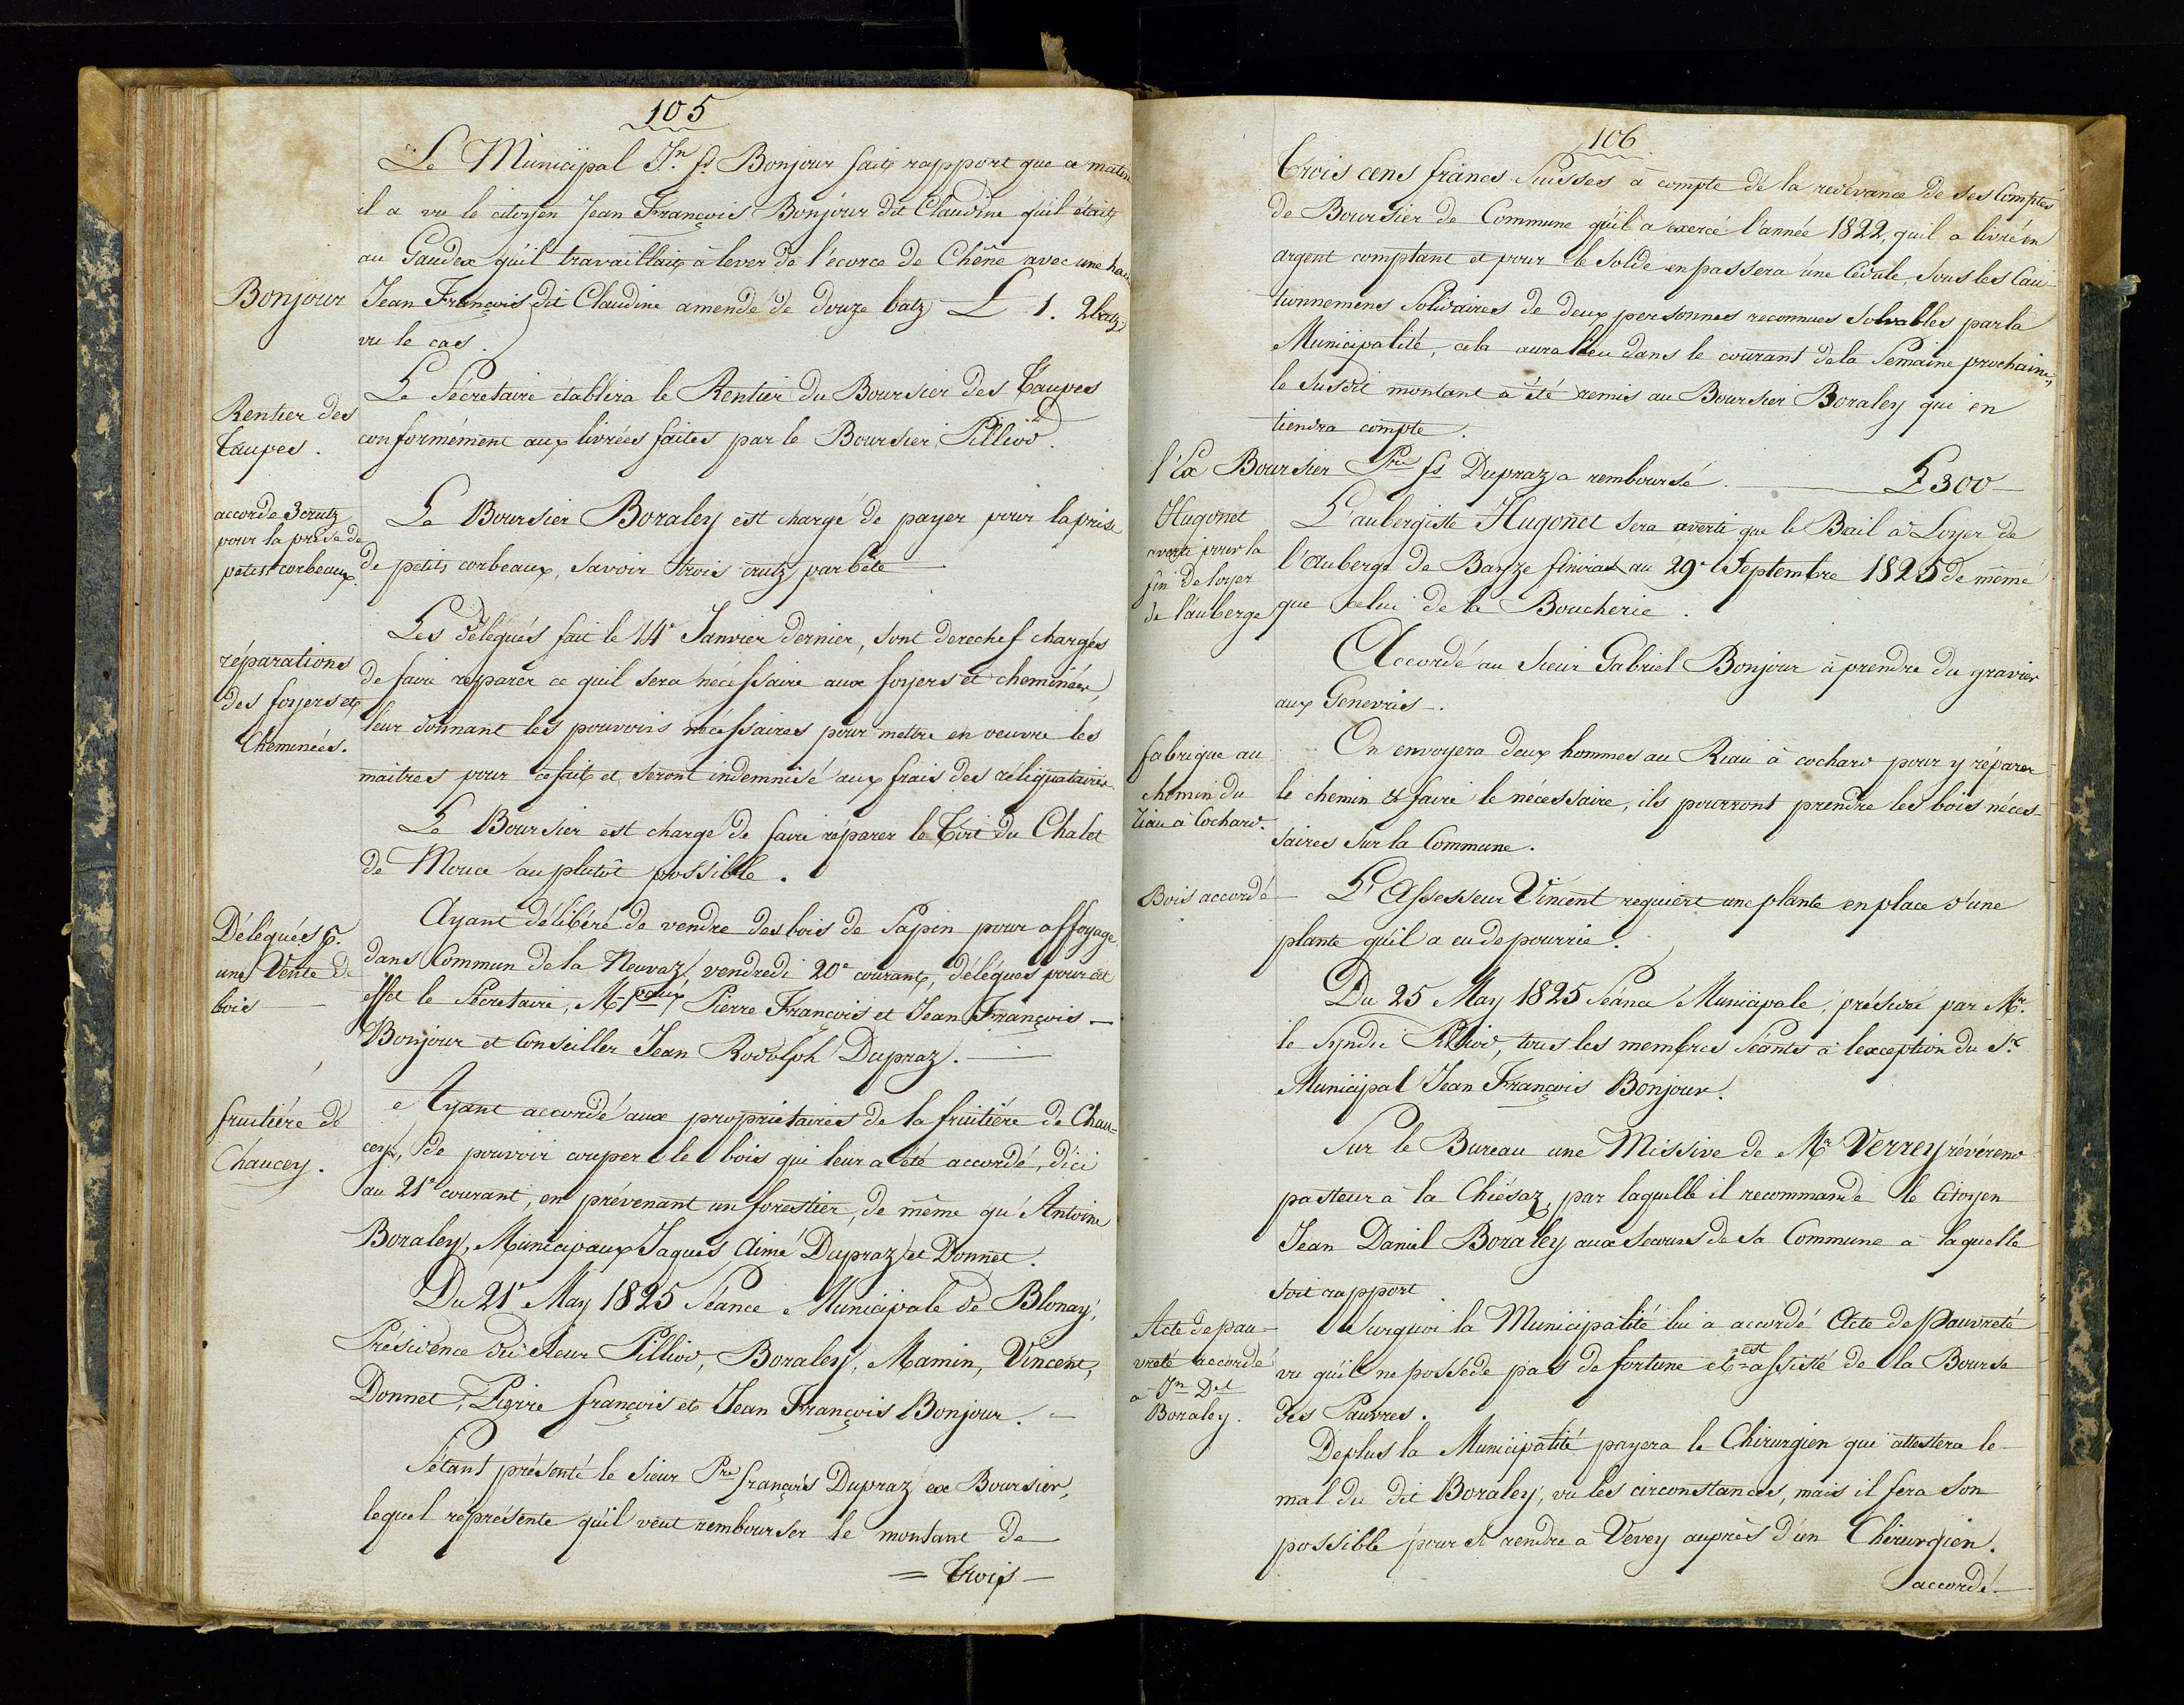 105
Le Municipal Jn. fs Bonjour fait rapport que ce matin
il a vu le citoyen Jean François Bonjour dit Claudine qu'il était
au Gaudex qu'il travaillait à lever de l'écorce de Chêne avec une
Bonjour
Jean François dit Claudine amendé de douze batz L 1. 2batz
vu le cas.
Rentier des
Taupes.
Le Sécretaire établira le Rentier du Boursier des Taupes
conformément aux livrées faites par le Boursier Pilliod.
accorde 3 crutz
pour la prise de
petits corbeaux.
Le Boursier Boraley est chargé de payer pour la prise
de petits corbeaux, savoir trois crutz par bête
réparations
des foyers et
Cheminées.
Les délégués fait le 14e Janvier dernier, sont derechef chargés
de faire réparer ce quil sera nécéssaire aux foyers et cheminées,
leur donnant les pouvoirs nécéssaires pour mettre en oeuvre les
maitres pour ce fait et seront indemnisé aux frais des réliquataires.
Le Boursier est chargé de faire réparer le Toit du Chalet
de Mouce au plutôt possible.
Délégués p.
une Vente de
bois
Ayant délibéré de vendre des bois de Sapin pour affoyage
dans Commun de la Neuvaz, vendredi 20e courant, délégués pour cet
effet le Sécretaire, Mpaux Pierre François et Jean François
Bonjour et Conseiller Jean Rodolph Dupraz.
fruitière de
Chaucey.
Ayant accordé aux propriétaires de la fruitière de Chau-
cey, de pouvoir couper le bois qui leur a été accordé, d'ici
au 21e courant, en prévenant un forestier, de même qu'Antoine
Boraley, Municipaux Jaques Aimé Dupraz et Donnet.
Du 21e May 1825 Séance Municipale de Blonay,
Présidence du Sieur Pilliod, Boraley, Mamin, Vincent,
Donnet, Pierre françois et Jean François Bonjour.
S'étant présenté le Sieur Pre françois Dupraz ex Boursier,
lequel représente qu'il veut rembourser le montant de
= Trois
106
Trois cens francs Suisses à compte de la redevance de ses Comptes
de Boursier de Commune qu'il a exercé l'année 1822, qu'il a livré en
argent comptant et pour le Solde en passera une Cédule, sous les Cau-
tionnemens Solidaires de deux personnes reconnues Solvables par la
Municipalité, cela aura lieu dans le courant de la Semaine prochaine,
le susdit montant a été remis au Boursier Boraley qui en
tiendra compte.
l'Ex Boursier Pre fs Dupraz a remboursé. L 300
Hugonet
averti pour la
fin de loyer
de l'auberge
L'aubergiste Hugonet sera averti que le Bail à Loyer de
l'auberge de Bahze finira au 29e Septembre 1825 de même
que celui de la Boucherie.
Accordé au Sieur Gabriel Bonjour à prendre du gravier
aux Genevris.
fabrique au
chemin du
riau à Cochard.
On envoyera deux hommes au Riau à cochard pour y réparer
le chemin & faire le nécessaire, ils pourront prendre les bois néces-
saires sur la Commune.
Bois accordé
L'Assesseur Vincent requiert une plante en place d'une
plante qu'il a eu de pourrie.
Du 25 May 1825 Séance Municipale, présidée par Mr.
le Syndic Pilliod, tous les membres Séants à l'exception du Sr.
Municipal Jean François Bonjour.
Sur le Bureau une Missive de Mr Verrey révérend
pasteur à la Chiésaz, par laquelle il recommande le Citoyen
Jean Daniel Boraley aux secours de sa Commune à laquelle
soit rapport.
Acte de pau-
vreté accordé
a Jn Del
Boraley.
Surquoi la Municipalité lui a accordé Acte de Pauvreté
vu qu'il ne posséde pas de fortune et est assisté de la Bourse
des Pauvres.
Deplus la Municipalité payera le Chirurgien qui attestera le
mal du dit Boraley, vu les circonstances, mais il fera son
possible pour se rendre à Vevey auprès d'un Chirurgien.
accordé